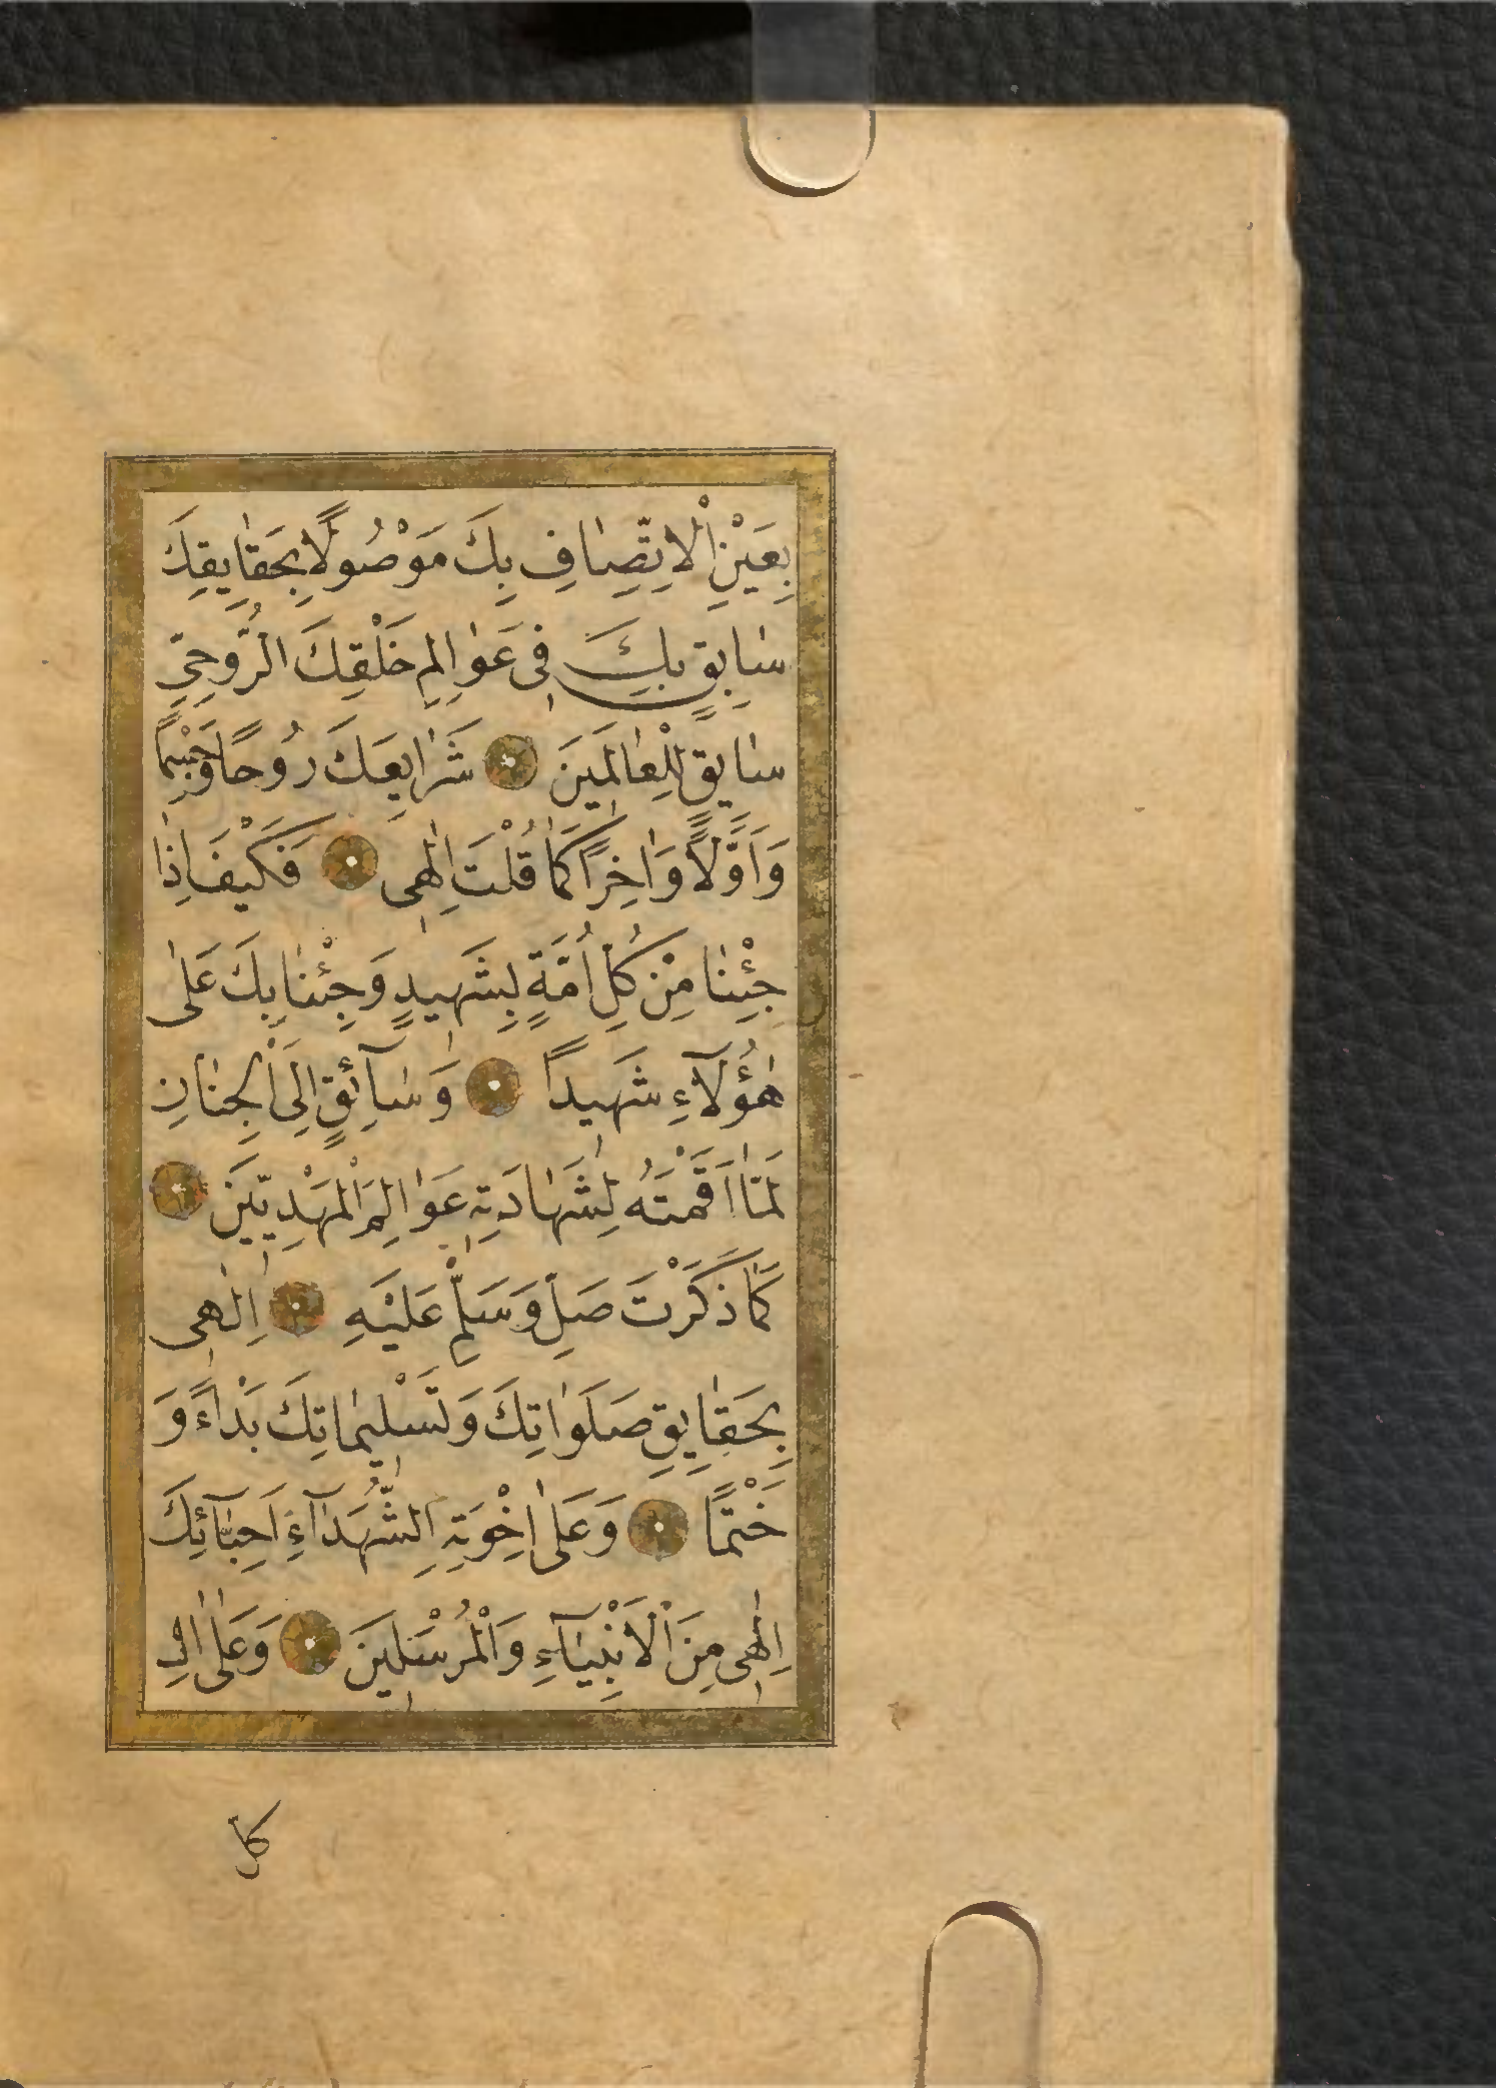 بِعَيْنِ الْاِتِّصَافِ بِكَ مَوْصُولًا بِحَقَايِقِكَ
سَابِقٍ بِكَ فِى عَوَالِمِ خَلْقِكَ الرُّوحِىِّ
سَايِقٍ لِلْعَالَمِينَ شَرَايِعَكَ رُوحًا وَجِسْمًا
وَاَوَّلًا وَاٰخِرًا كَمَا قُلْتَ اِلٰهِى فَكَيْفَ اِذَا
جِئْنَا مِنْ كُلِّ اُمَّةٍ بِشَهِيدٍ وَجِئْنَا بِكَ عَلٰى
هٰؤُلَآءِ شَهِيدًا وَسَآئِقٍ اِلَى الْجِنَانِ
لَمَّا اَقَمْتَهُ لِشَهَادَةِ عَوَالِمِ الْمَهْدِيِّينَ
كَمَا ذَكَرْتَ صَلِّ وَسَلِّمْ عَلَيْهِ اِلٰهِى
بِحَقَايِقِ صَلَوَاتِكَ وَتَسْلِيمَاتِكَ بَدْاءً وَ
خَتْمًا وَعَلٰى اِخْوَتِهِ الشُّهَدَآءِ اَحِبَّآئِكَ
اِلٰهِى مِنَ الْاَنْبِيَآءِ وَالْمُرْسَلِينَ وَعَلٰى اٰلِ
كل